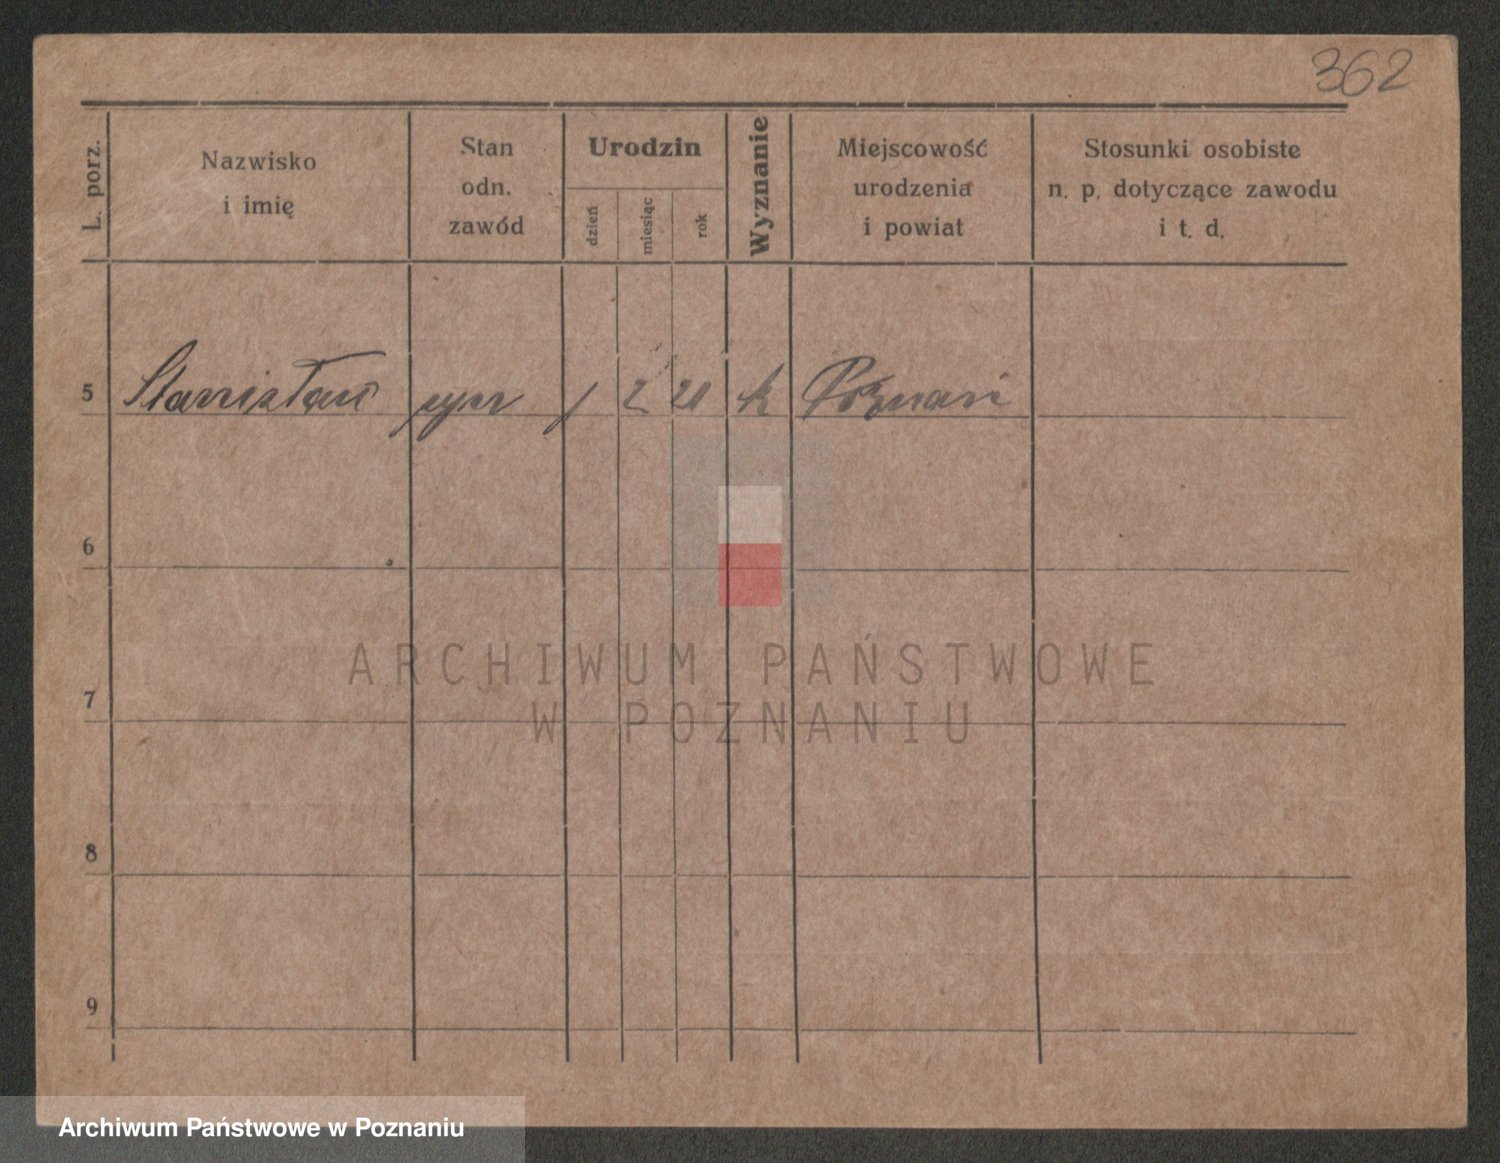 362
L. porz.
Nazwisko
i imię
Stan
odn.
zawód
Urodzin
dzień
miesiąc
rok
Wyznanie
Miejscowość
urodzenia
i powiat
Stosunki osobiste
n. p. dotyczące zawodu
i t. d.
5 Stanisław 1 2 21 k Poznań
6
ARCHIWUM PAŃSTWOWE
7
W POZNANIU
8
9
Archiwum Państwowe w Poznaniu